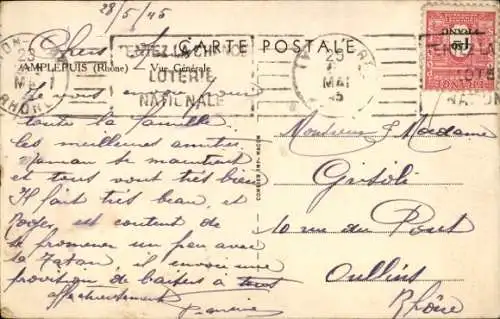 28/5/45
Chers
CARTE POSTALE
AMPLEPUIS (Rhône) Vue Générale
TENTEZ LA CHANCE
LOTERIE
NATIONALE
25
MAI
45
RHÔNE
Je vous envoie pour
toute la famille
les meilleures amitiés
Maman se maintient
et tous vont très bien
Il fait très beau, et
Roger est content de
se promener un peu avec
le Tatan il envoie une
provision de baisers à tous
affectueusement
Monsieur & Madame
Grisoli
10 rue du Pont
Oullins
Rhône